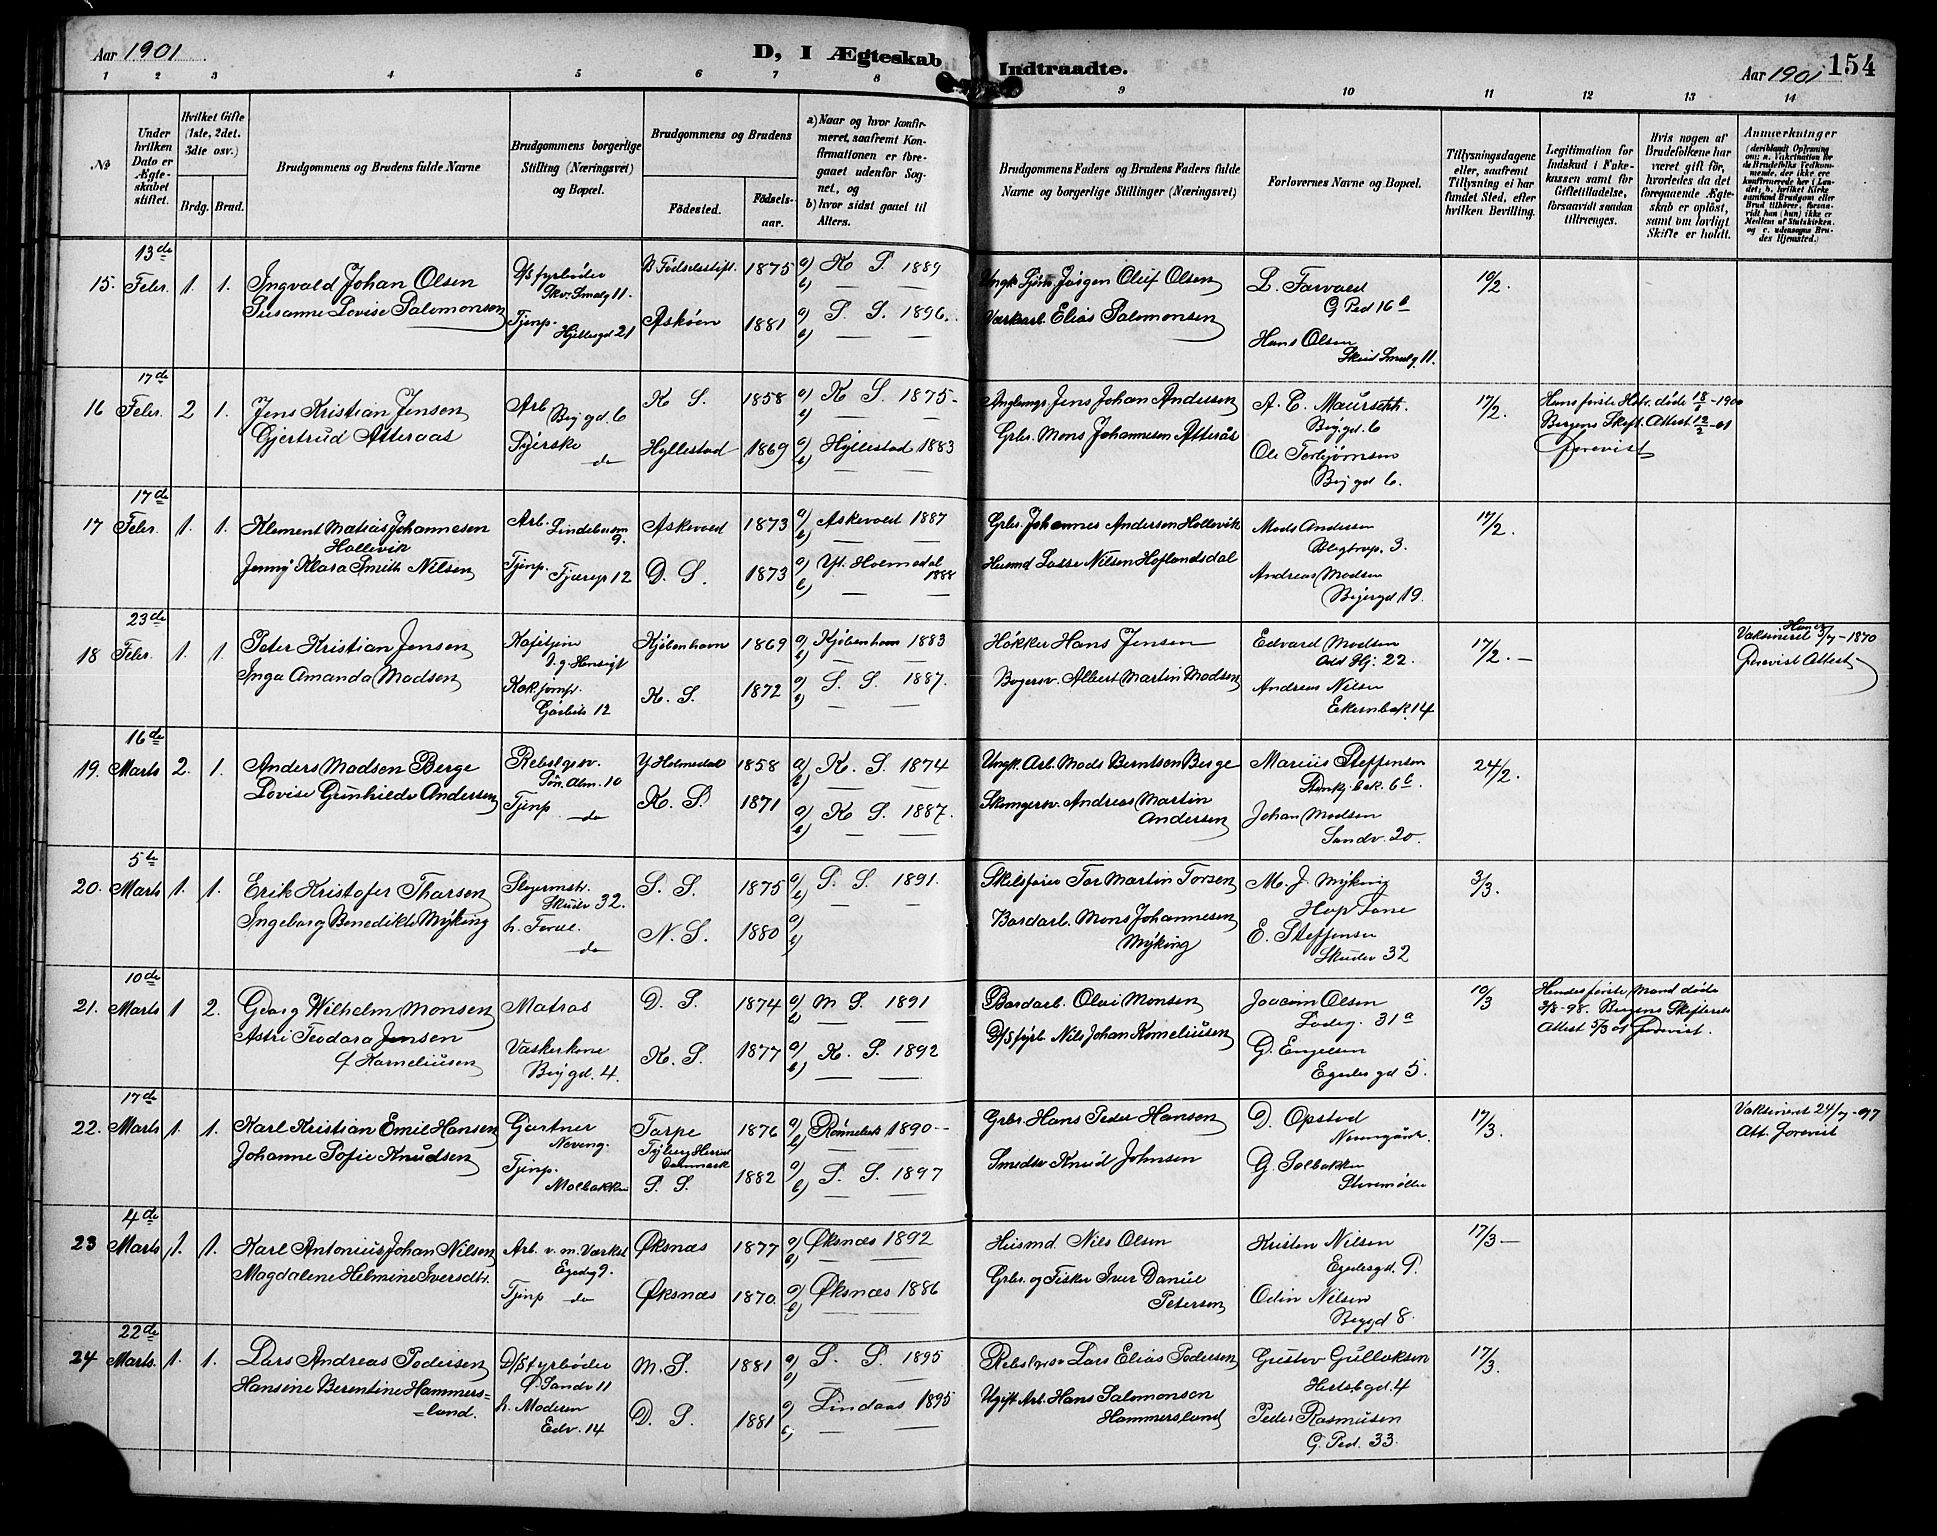 Aar 1901
D, I Ægteskab Indtraadte.
Aar 1901 154
1 2 3 4 5 6 7 8 9 10 11 12 13 14
No
Under hvilken Dato er Ægteskabet stiftet.
Hvilket Gifte (1ste, 2det. 3die osv.)
Brdg. Brud.
Brudgommens og Brudens fulde Navne
Brudgommens borgerlige Stilling (Næringsvei) og Bopæl.
Brudgommens og Brudens
Fødested.
Fødselsaar.
a) Naar og hvor konfirmeret, saafremt Konfirmationen er foregaaet udenfor Sognet, og
b) hvor sidst gaaet til Alters.
Brudgommens Faders og Brudens Faders fulde Navne og borgerlige Stillinger (Næringsvei)
Forlovernes Navne og Bopæl.
Tillysningsdagene eller, saafremt Tillysning ei har fundet Sted, efter hvilken Bevilling.
Legitimation for Indskud i Enkekassen samt for Giftetilladelse, forsaavidt saadan tiltrænges.
Hvis nogen af Brudefolkene har været gift før, hvorledes da det foregaaende Ægteskab er opløst, samt om lovligt Skifte er holdt.
Anmærkninger
15. 13de Febr. 1. 1.
Ingvald Johan Olsen
Susanne Lovise Salomonsen
D/S fyrbøder
Skv. Smalg 11.
Tjenp.
Hjellesgd 21
B Fødselsstift. 1875 a) K S. 1889
b)
Askøen 1881 a) S. S. 1896.
b) — —
Ungk. Sjøm. Jørgen Oluf Olsen
Værkarb. Elias Salomonsen
L. Farvaed
G Ped 16
Hans Olsen
Skud Smalg 11.
10/2
16 17de Febr. 2 1.
Jens Kristian Jensen
Gjertrud Atteraas
Arb
Bøjgd. 6
Syerske
do
K S. 1858 a) K S. 1875
b) — —
Hyllestad 1869 a) Hyllestad 1883
b) — —
Jens Johan Andersen
Grbr. Mons Johannesen Atterås
A. C. Maurseth.
Bøjgd. 6
Ole Torbjørnsen
Bøjgd 6.
17/2.
Hans første Hstr. døde 18/6-1900
Bergens Skift. Attest 12/2-01
Forevist
17 17de Febr. 1. 1.
Klement Matias Johannesen
Hollevik
Jenny Klara Smith Nilsen
Arb.
9.
Tjenp.
Askevold 1873 a) Askevold 1887
b) — —
D. S. 1873 a) Yt. Holmedal
1888
b) — —
Grbr. Johannes Andersen Hollevik
Husmd Lasse Nilsen Hoflandsdal
Mads Andersen
3.
Andreas Madsen
Bøjergd 19.
17/2.
18 23de Febr. 1. 1.
Peter Kristian Jensen
Inga Amanda Madsen
Kjøbenhavn 1869 a) Kjøbenhavn 1883
b) — —
K. S. 1872 a) S. S. 1887.
b) — —
Høkker Hans Jensen
Bøgersv. Albert Martin Madsen
Edvard Madsen
Odd Hj. 22.
Andreas Nilsen
Ekernbak. 14
17/2. —
Han
Vaksineret 3/7-1870
Forevist Attest
19. 16de Marts 2. 1.
Anders Madsen Berge
Lovise Gunhilde Andersen
Rebslgsv.
Søn. Alm. 10
Tjenp
do
Y Holmedal 1858 a) K. S. 1874
b) — —
K. S. 1871 a) K S. 1887.
b) — —
Ungk. Arb. Mads Berntsen Berge
Skomgersv. Andreas Martin
Andersen
Marius Steffensen
Stenkj. bak. 6
Johan Madsen
Sandv. 20.
24/2.
20. 5te Marts 1. 1.
Erik Kristofer Tharsen
Ingeborg Benedikte Myking
Skudv 32.
h. Foræl.
do
S. S. 1875 a) S. S. 1891.
b) — —
N. S. 1880 a)
b)
Skibsfører Tor Martin Torsen
Bordarb. Mons Johannesen
Myking
M. J. Myking
Hop Fane
E. Steffensen
Skudev 32
3/3.
21. 10de Marts 1 2.
Georg Wilhelm Monsen
Astri Teodara Jensen
f Korneliusen
Matros
Vaskerkone
Bøjgd. 4.
D. S. 1874 a) M S. 1891
b) — —
K. S. 1877 a) K. S. 1892
b) — —
Bordarb. Oluf Monsen
D/S fyrb. Nils Johan Korneliusen
Joacim Olsen
Ladeg. 31a
G. Engelsen
Egedes gd 5.
10/3
Hendes første mand døde
3/8-98. Bergens Skifterets
Attest 5/3 01 Forevist.
22. 17de Marts 1. 1.
Karl Kristian Emil Hansen
Johanne Sofie Knudsen
Gartner
Tjenp.
Molbakken
Torpe
Danmark 1876 a) Rønnebæk 1890
b) — —
S. S. 1882 a) S. S. 1897
b) — —
Grbr. Hans Peder Hansen
Smedsv Knud Johnsen
D. Opstad
G. Solbakken
Storemøllen
17/3.
Vaksineret 24/7-97
Att. Forevist
23 4de Marts 1. 1.
Karl Antonius Johan Nilsen
Magdalene Helmine Iversdtr.
Arb. v. m. Værket
Egedeg 9.
Tjenp do
Øksnæs 1877 a) Øksnæs 1892
b) — —
Øksnæs 1870 a) Øksnæs 1886
b) — —
Husmd Nils Olsen
Grbr. og Fisker Iver Daniel
Petersen
Kristen Nilsen
Egedesgd. 9.
Odin Nilsen
Bøjgd 8.
17/3 —
24 22de Marts. 1. 1.
Lars Andreas Pedersen
Hansine Berentine Hammers=
=land.
D/S fyrbøder
Sandv 11
h. Moderen
Edv. 14
M. S. 1881 a) S. S. 1895
b) — —
D. S. 1881 a) Lindaas 1895
b) — —
Rebslgrsv Lars Elias Pedersen
Ugift Arb. Hans Salomonsen
Hammersland
Gustav Gullaksen
Heitsbgd. 4
Peder Rasmusen
G. Ped. 33.
17/3.